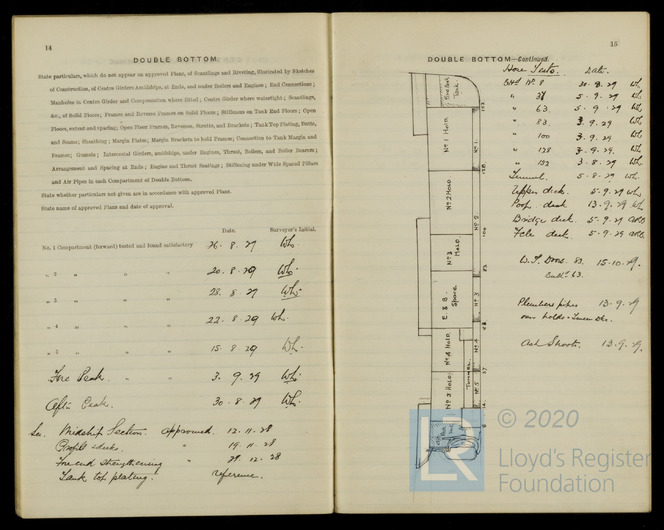 14
DOUBLE BOTTOM.
State particulars, which do not appear on approved Plans, of Scantlings and Riveting, illustrated by Sketches
of Construction, of Centre Girders Amidships, at Ends, and under Boilers and Engines; End Connections;
Manholes in Centre Girder and Compensation where fitted; Centre Girder where watertight; Scantlings,
&c., of Solid Floors; Frames and Reverse Frames on Solid Floors; Stiffeners on Tank End Floors; Open
Floors, extent and spacing; Open Floor Frames, Reverses, Struts, and Brackets; Tank Top Plating, Butts,
and Seams; Sheathing; Margin Plates; Margin Brackets to hold Frames; Connection to Tank Margin and
Frames; Gussets; Intercostal Girders, amidships, under Engines, Thrust, Boilers, and Boiler Bearers;
Arrangement and Spacing at Ends; Engine and Thrust Seatings; Stiffening under Wide Spaced Pillars
and Air Pipes in each Compartment of Double Bottom.
State whether particulars not given are in accordance with approved Plans.
State name of approved Plans and date of approval.
Date. Surveyor's Initial.
No. 1 Compartment (forward) tested and found satisfactory 26.8.29 Wh.
„ 2 „ „ „ 20.8.29 Wh.
„ 3 „ „ „ 28.8.29 Wh.
„ 4 „ „ „ 22.8.29 Wh.
„ 5 „ „ „ 15.8.29 Wh.
Fore Peak „ „ 3.9.29 Wh.
Aft Peak. 30.8.29 Wh.
Midship Section. approved. 12.11.28
Profile & decks. „ 19.11.28
Fore end strengthening „ 29.12.28
Tank top plating. reference.
15
DOUBLE BOTTOM—continued.
Hose Tests. Date.
Bhd No. 8 20.8.29 Wh
„ 37 5.9.29 Wh
„ 63. 5.9.29 Wh
„ 83. 3.9.29 Wh
„ 100 3.9.29 Wh
„ 128 3.9.29 Wh
„ 152 3.8.29 Wh
Tunnel. 5.8.29 Wh
Upper deck. 5.9.29 Wh
Poop deck 13.9.29 Wh
Bridge deck. 5.9.29
Fcle deck. 5.9.29
W.T. Doors. 83. 15.10.29.
Bulkd 63.
Plumbers pipes 13.9.29
over holds & Tween Dks.
Ash Shoots. 13.9.29.
Fore Peak Tank
No. 1 Hold.
No. 2 Hold
No. 3 Hold.
E. & B. Space.
No. 4 Hold.
No. 5 Hold.
Tunnel.
No. 1
No. 2
No. 3
No. 4
No. 5
152
128
100
83
37
14
8
© 2020
LR
Lloyd's Register
Foundation